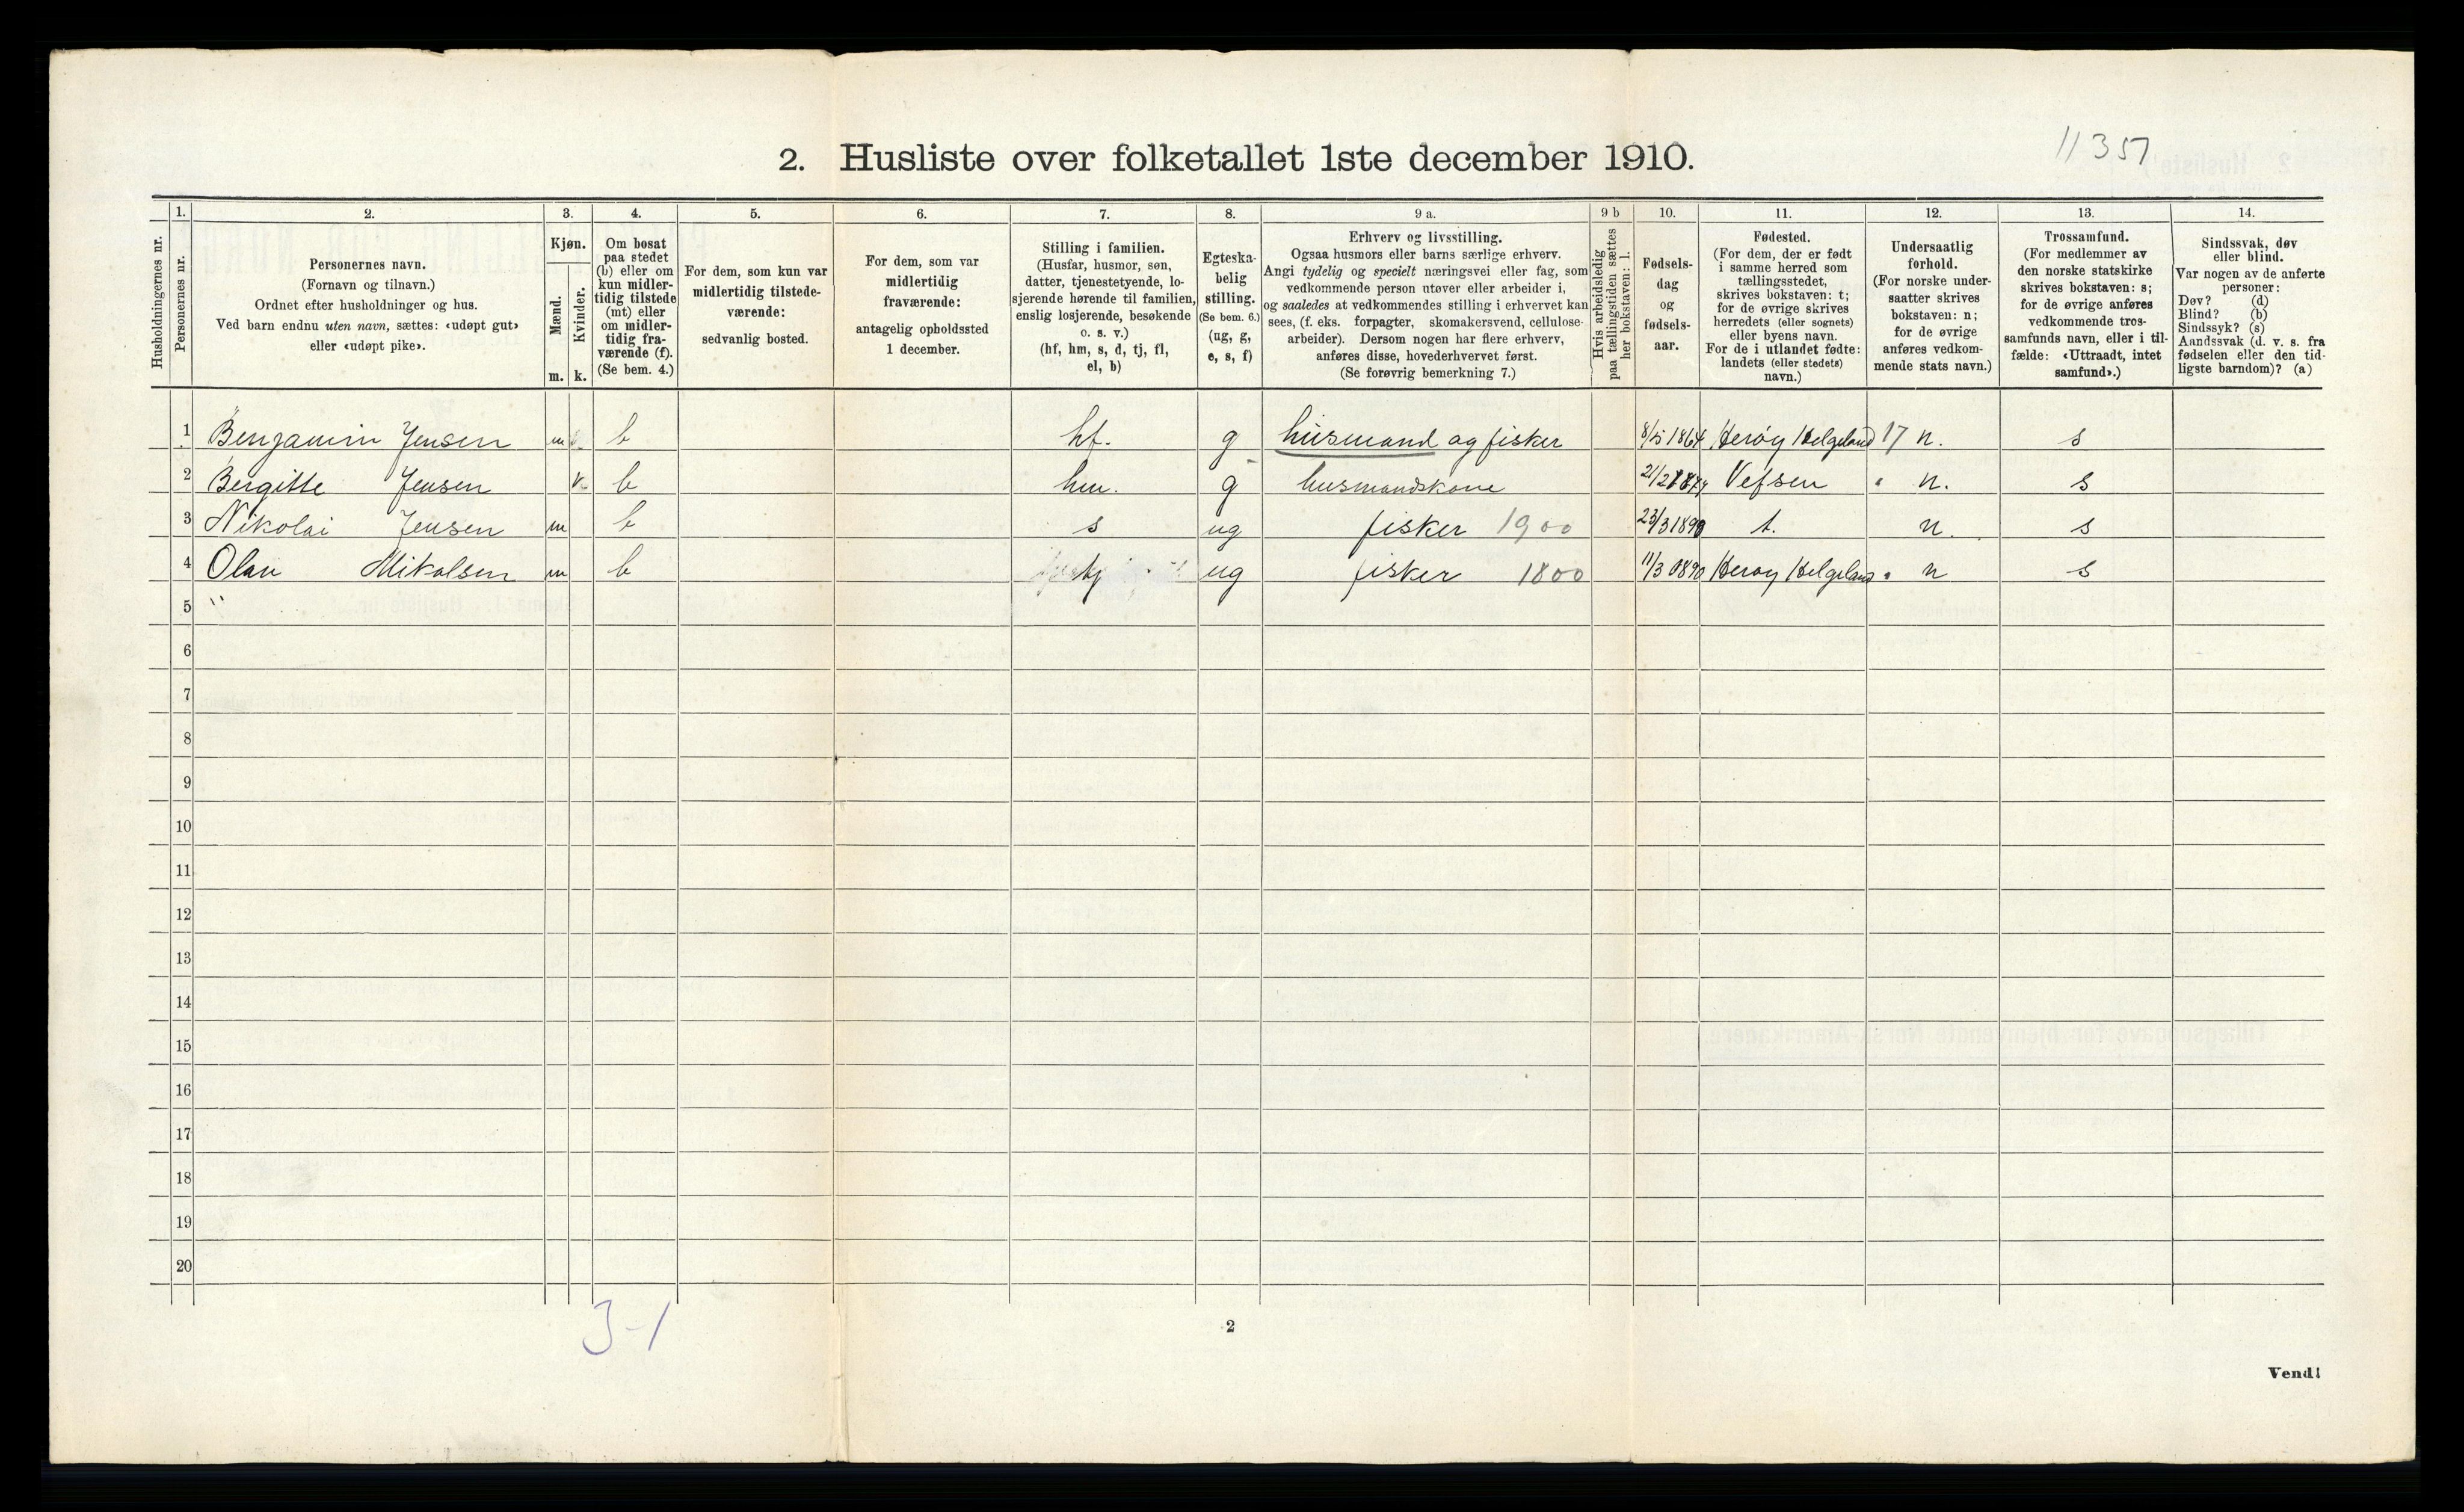 11357
2. Husliste over folketallet 1ste december 1910.
Husholdningernes nr.
1.
Personernes nr.
2.
Personernes navn.
(Fornavn og tilnavn.)
Ordnet efter husholdninger og hus.
Ved barn endnu uten navn, sættes: «udøpt gut»
eller «udøpt pike».
3.
Kjøn.
Mænd.
Kvinder.
m.
k.
4.
Om bosat
paa stedet
(b) eller om
kun midler-
tidig tilstede
(mt) eller
om midler-
tidig fra-
værende (f).
(Se bem. 4.)
5.
For dem, som kun var
midlertidig tilstede-
værende:
sedvanlig bosted.
6.
For dem, som var
midlertidig
fraværende:
antagelig opholdssted
1 december.
7.
Stilling i familien.
(Husfar, husmor, søn,
datter, tjenestetyende, lo-
sjerende hørende til familien,
enslig losjerende, besøkende
o. s. v.)
(hf, hm, s, d, tj, fl,
el, b)
8.
Egteska-
belig
stilling.
(Se bem. 6.)
(ug, g,
e, s, f)
9 a.
Erhverv og livsstilling.
Ogsaa husmors eller barns særlige erhverv.
Angi tydelig og specielt næringsvei eller fag, som
vedkommende person utøver eller arbeider i,
og saaledes at vedkommendes stilling i erhvervet kan
sees, (f. eks. forpagter, skomakersvend, cellulose-
arbeider). Dersom nogen har flere erhverv,
anføres disse, hovederhvervet først.
(Se forøvrig bemerkning 7.)
9 b
Hvis arbeidsledig
paa tællingstiden sættes
her bokstaven: l.
10.
Fødsels-
dag
og
fødsels-
aar.
11.
Fødested.
(For dem, der er født
i samme herred som
tællingsstedet,
skrives bokstaven: t;
for de øvrige skrives
herredets (eller sognets)
eller byens navn.
For de i utlandet fødte:
landets (eller stedets)
navn.)
12.
Undersaatlig
forhold.
(For norske under-
saatter skrives
bokstaven: n;
for de øvrige
anføres vedkom-
mende stats navn.)
13.
Trossamfund.
(For medlemmer av
den norske statskirke
skrives bokstaven: s;
for de øvrige anføres
vedkommende tros-
samfunds navn, eller i til-
fælde: «Uttraadt, intet
samfund».)
14.
Sindssvak, døv
eller blind.
Var nogen av de anførte
personer:
Døv? (d)
Blind? (b)
Sindssyk? (s)
Aandssvak (d. v. s. fra
fødselen eller den tid-
ligste barndom)? (a)
1 Benjamin Jensen m b hf. g husmand og fisker 8/5 1864 Herøy Helgeland 17 n. s
2 Bergitte Jensen k b hm. g husmandskone 21/2 Vefsen " n. s
3 Nikolai Jensen m b s ug fisker 1900 23/3 1890 t. n. s
4 Olau Mikalsen m b tj ug fisker 1800 11/3 0890 Herøy Helgeland " n s
5 "
6
7
8
9
10
11
12
13
14
15
16
17
18
19
20
3-1
2
Vend!